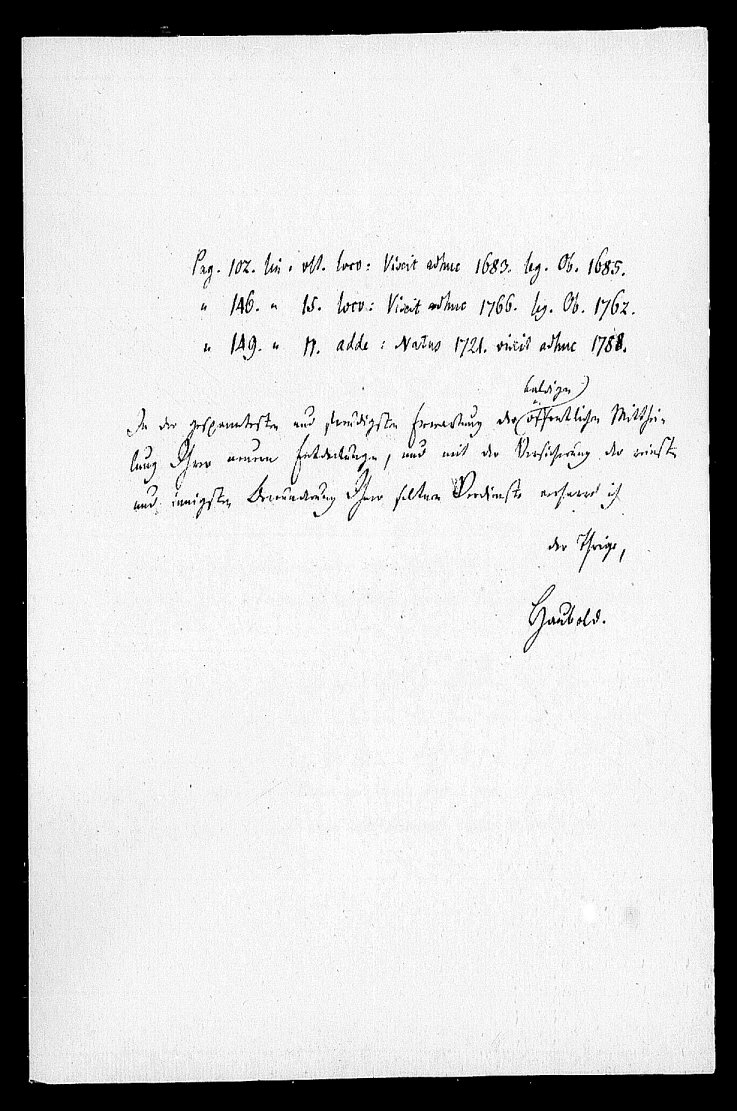 Pag. 102. lin. ult. loco: Vixit adhuc 1683. leg. Ob. 1685.
" 146. " 15. loco: Vixit adhuc 1766. leg. Ob. 1762.
" 149. " 17. adde: Natus 1721. vixit adhuc 1788.
baldigen
In der gespanntesten und freudigsten Erwartung der öffentlichen Mitthei-
lung Ihrer neuen Entdeckungen, und mit der Versicherung der reinsten
und innigsten Bewunderung Ihrer seltnen Verdienste verharre ich
der Ihrige,
Haubold.